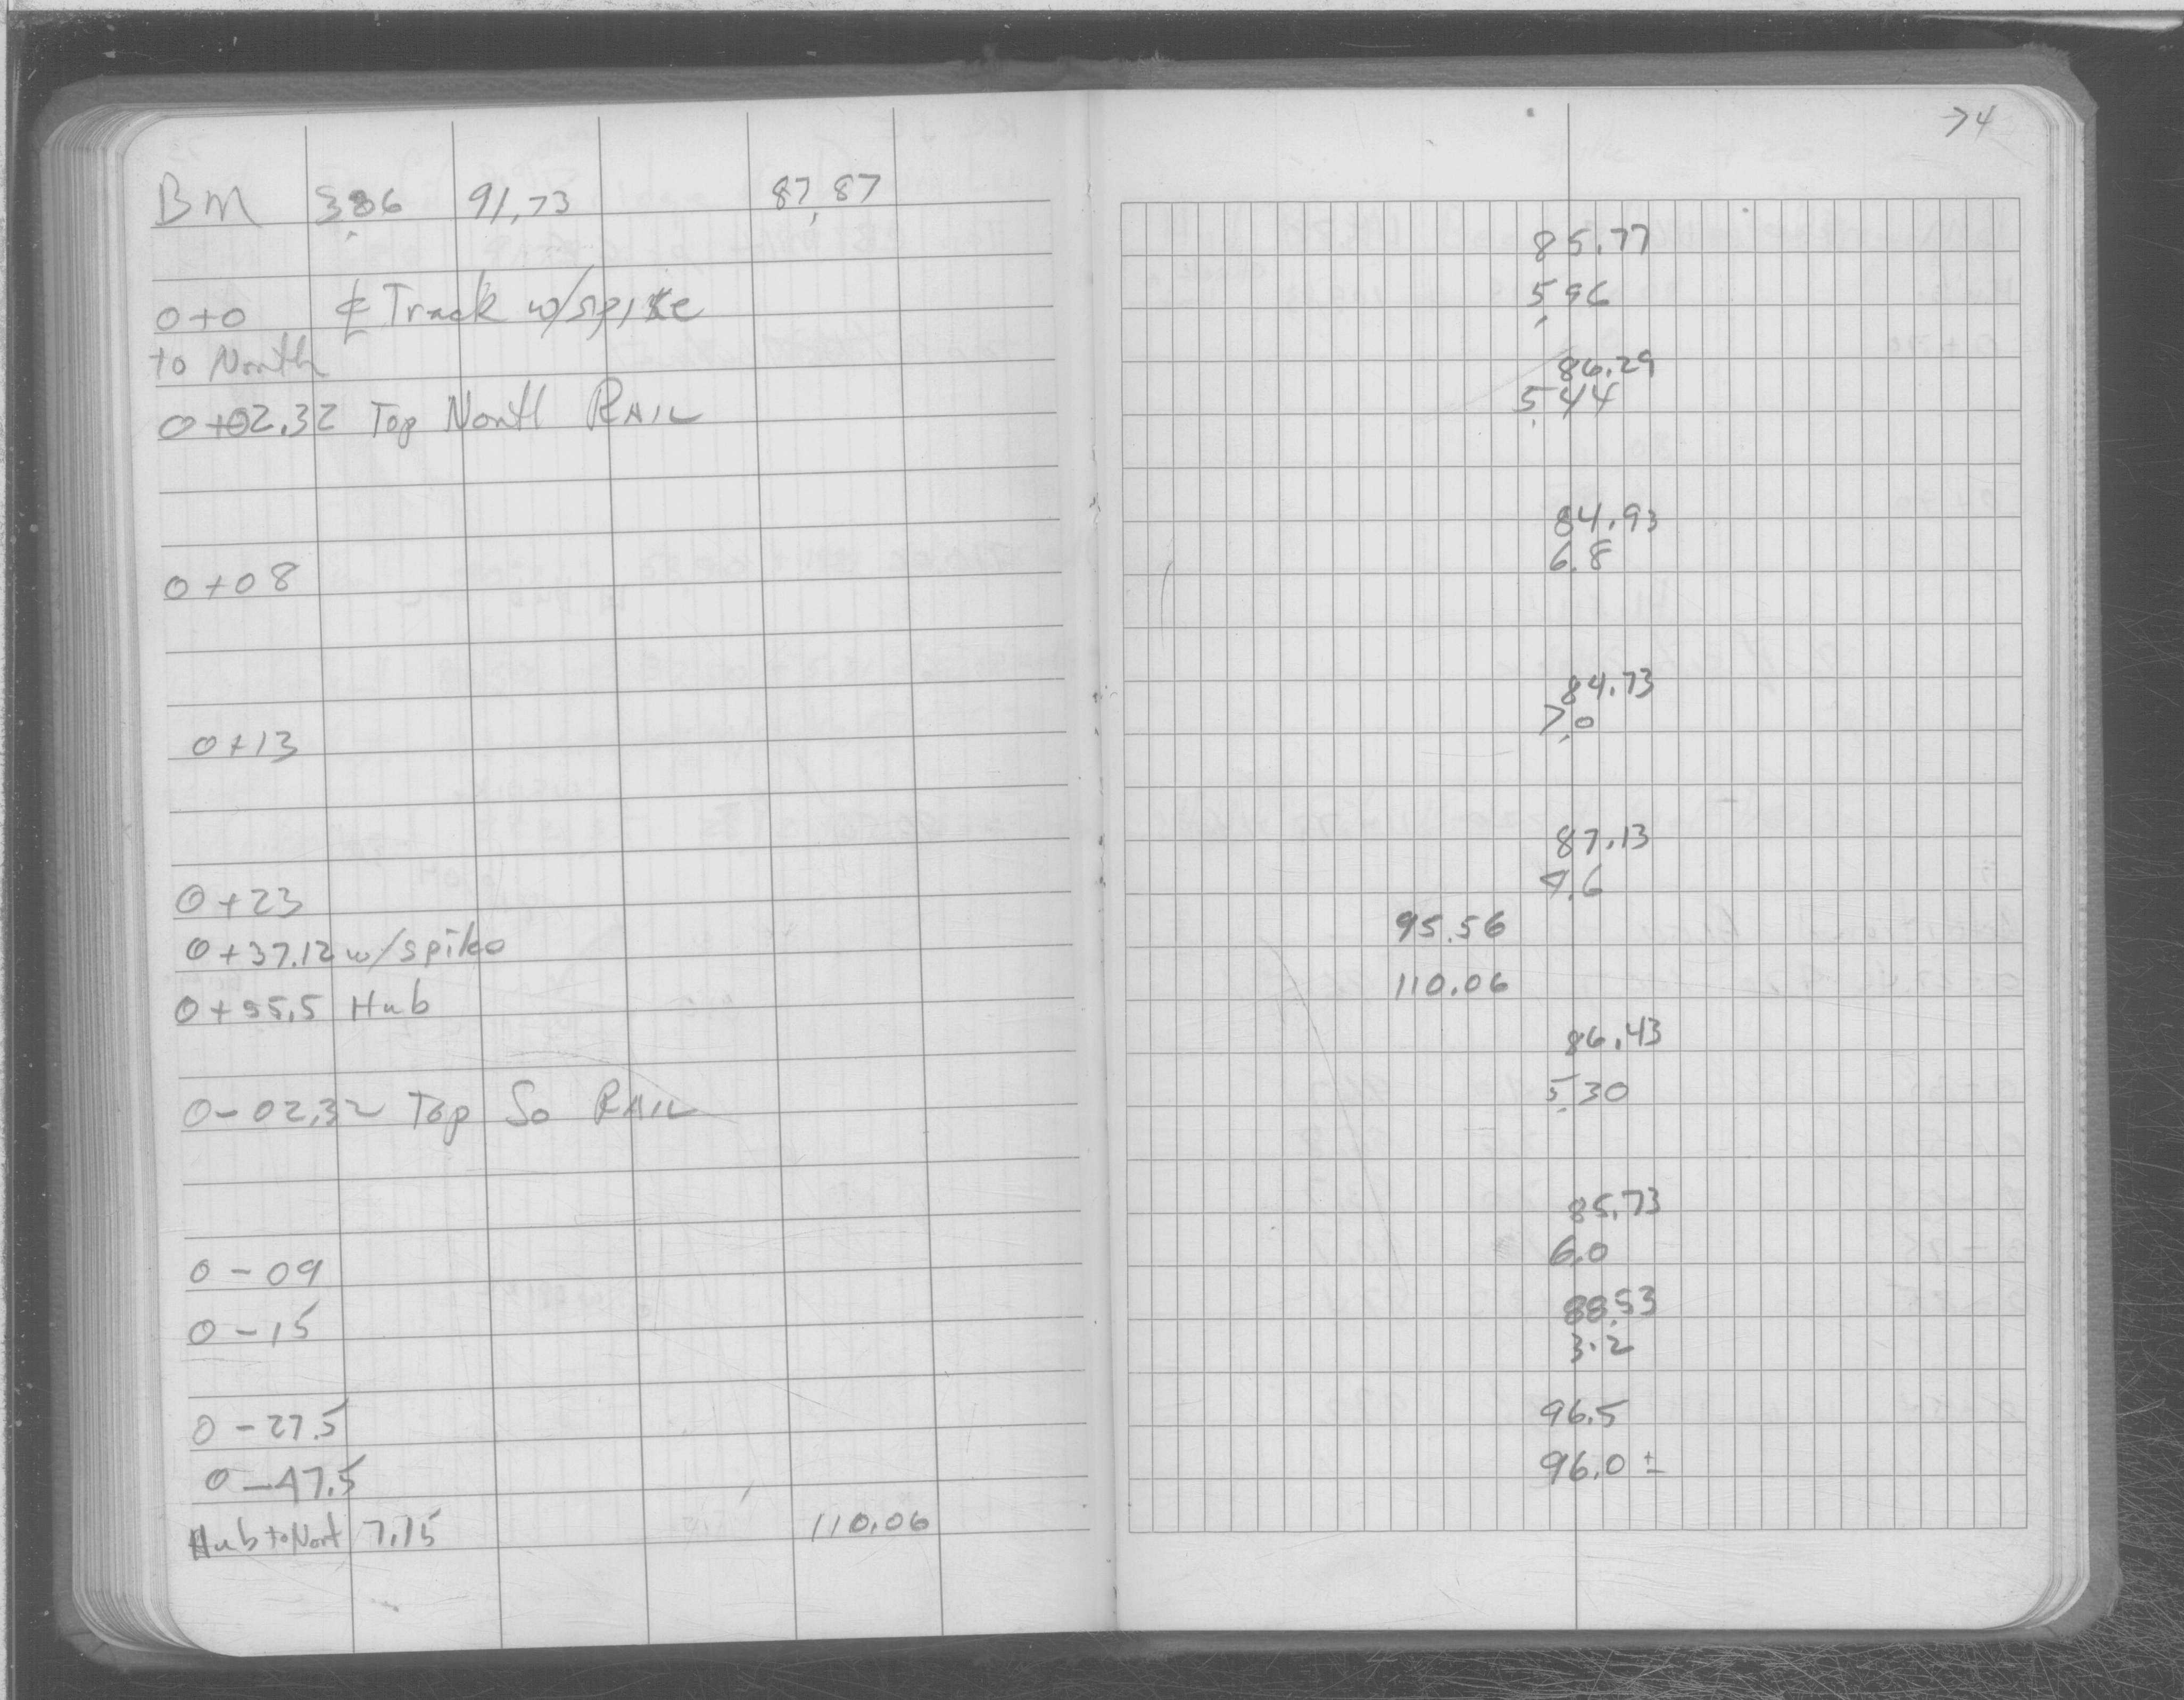 74
BM 3.86 91.73 87.87
85.77
0+0 ⅊ Track w/spike 5.96
to North
86.29
0+02.32 Top North RAIL 5.44
84.93
0+08 6.8
84.73
0+13 7.0
87.13
0+23 4.6
0+37.12 w/spike 95.56
0+95.5 Hub 110.06
86.43
0-02.32 Top So RAIL 5.30
85.73
0-09 6.0
88.53
0-15 3.2
0-27.5 96.5
0-47.5 96.0 ±
Hub to Nort 7.15 110.06